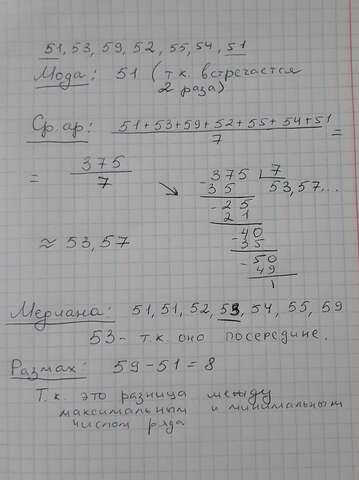 51, 53, 59, 52, 55, 54, 51
Мода: 51 (т.к. встречается
2 раза)
Ср.ар: 51+53+59+52+55+54+51 =
7
= 375
7
375 7
35 53,57...
- 25
21
- 40
35
- 50
49
1
≈ 53,57
Медиана: 51, 51, 52, 53, 54, 55, 59
53 - т.к. оно посередине.
Размах: 59 - 51 = 8
Т.к. это разница между
максимальным и минимальным
числом ряда